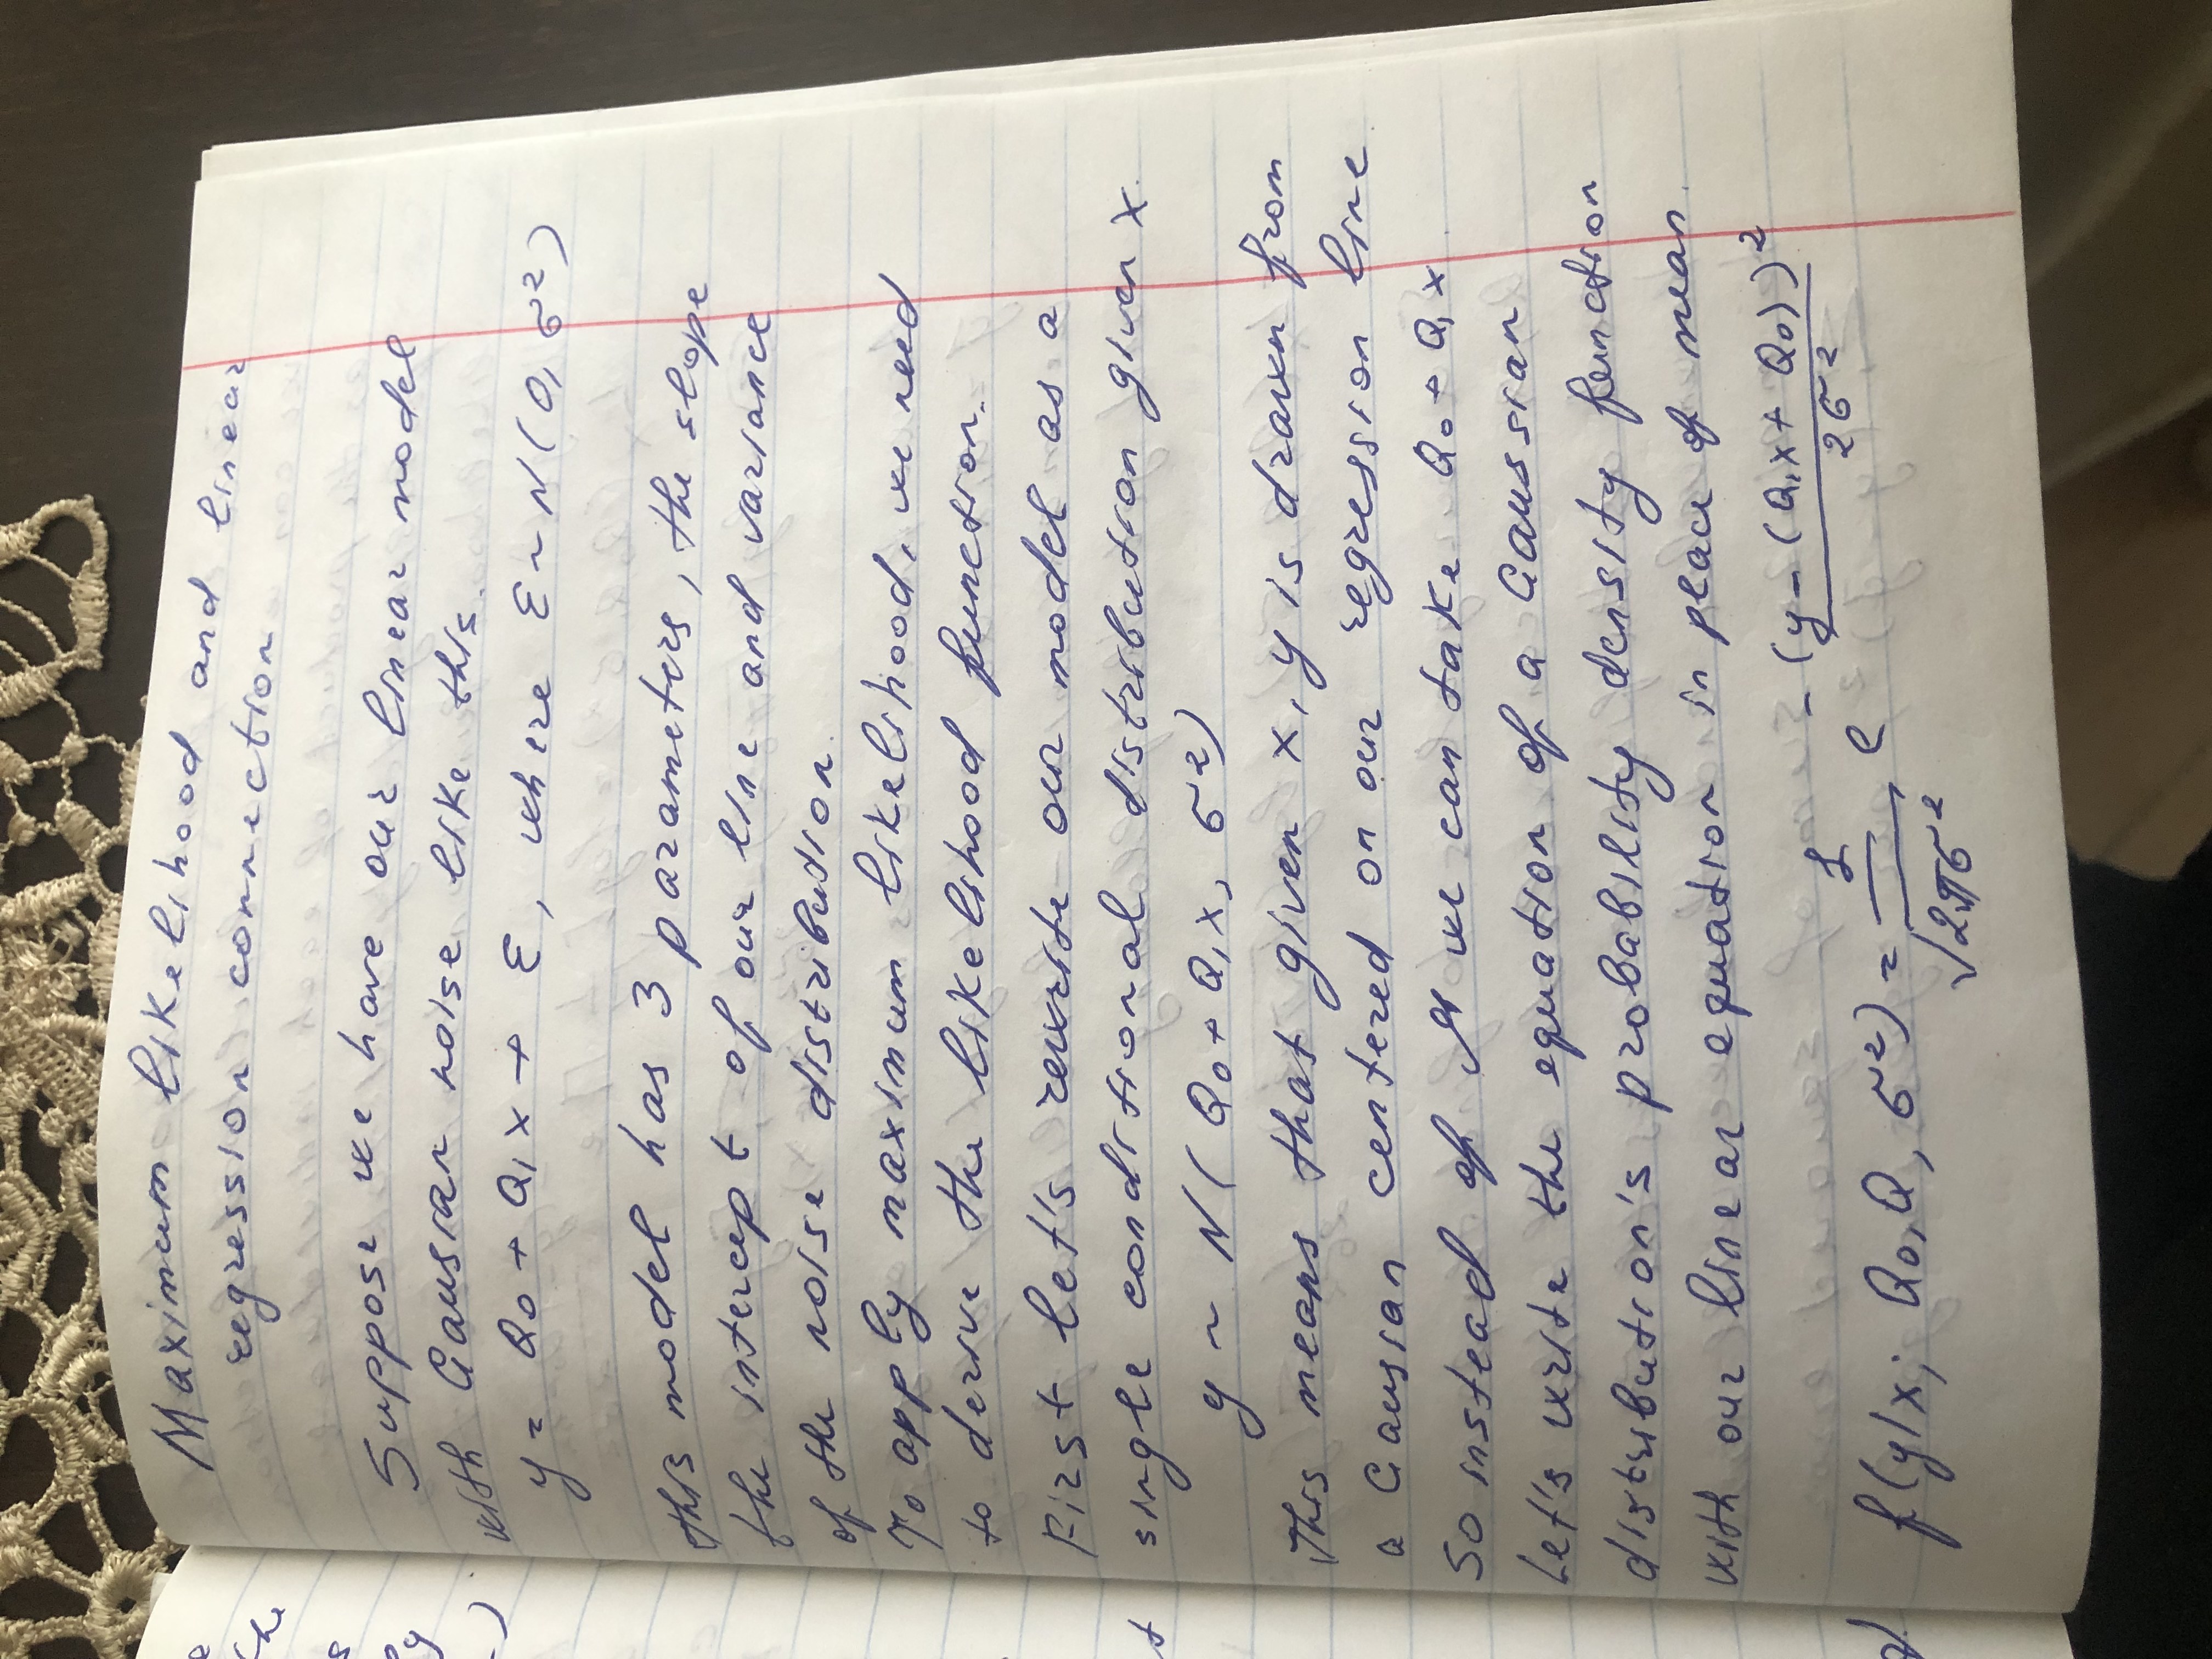 Maximum likelihood and linear
regression connection
Suppose we have our linear model
with Gausian noise like this.
y = Q₀ + Q₁x + ε, where ε ~ N(0, σ²)
this model has 3 parameters, the slope
the intercept of our line and variance
of the noise distribution.
To apply maximum likelihood, we need
to derive the likelihood function.
First let's rewrite our model as a
single conditional distribution given x.
y ~ N(Q₀ + Q₁x, σ²)
This means that given x, y is drawn from
a Gausian centered on our regression line
So instead of μ we can take Q₀ + Q₁x.
Let's write the equation of a Gaussian
distribution's probability density function
with our linear equation in place of mean.
f(y|x; Q₀, Q, σ²) = 1/√(2πσ²) e^(-(y-(Q₁x+Q₀))²/2σ²)